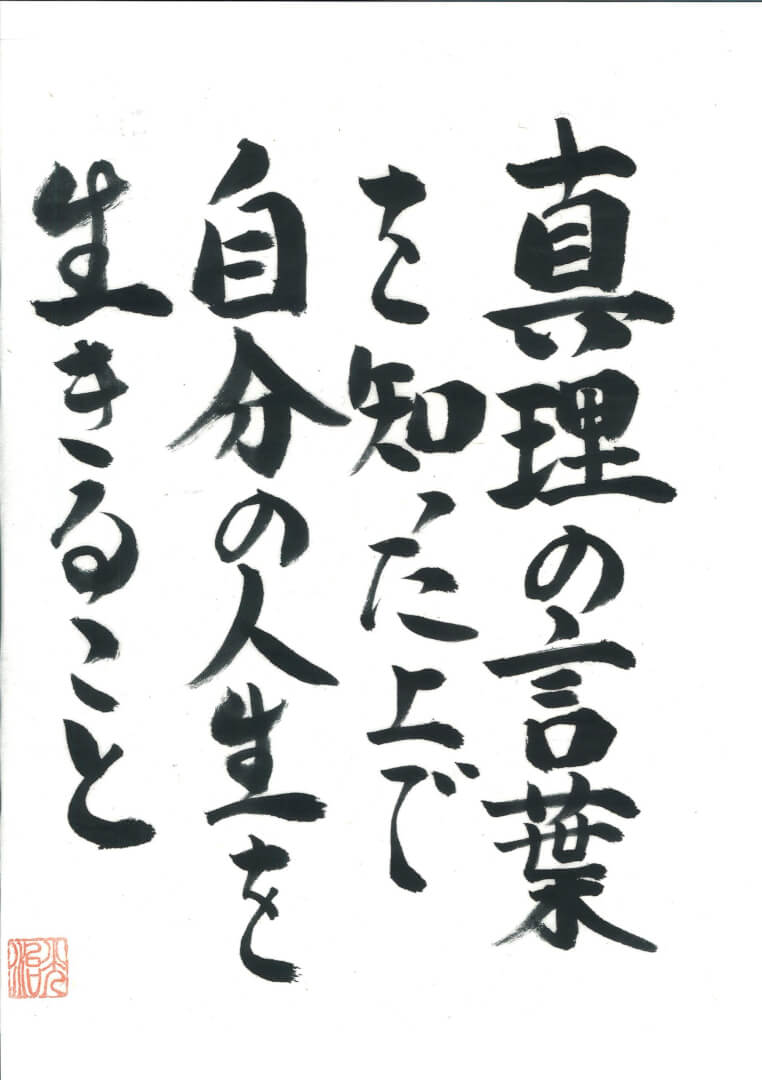 真理の言葉
を知った上で
自分の人生を
生きること